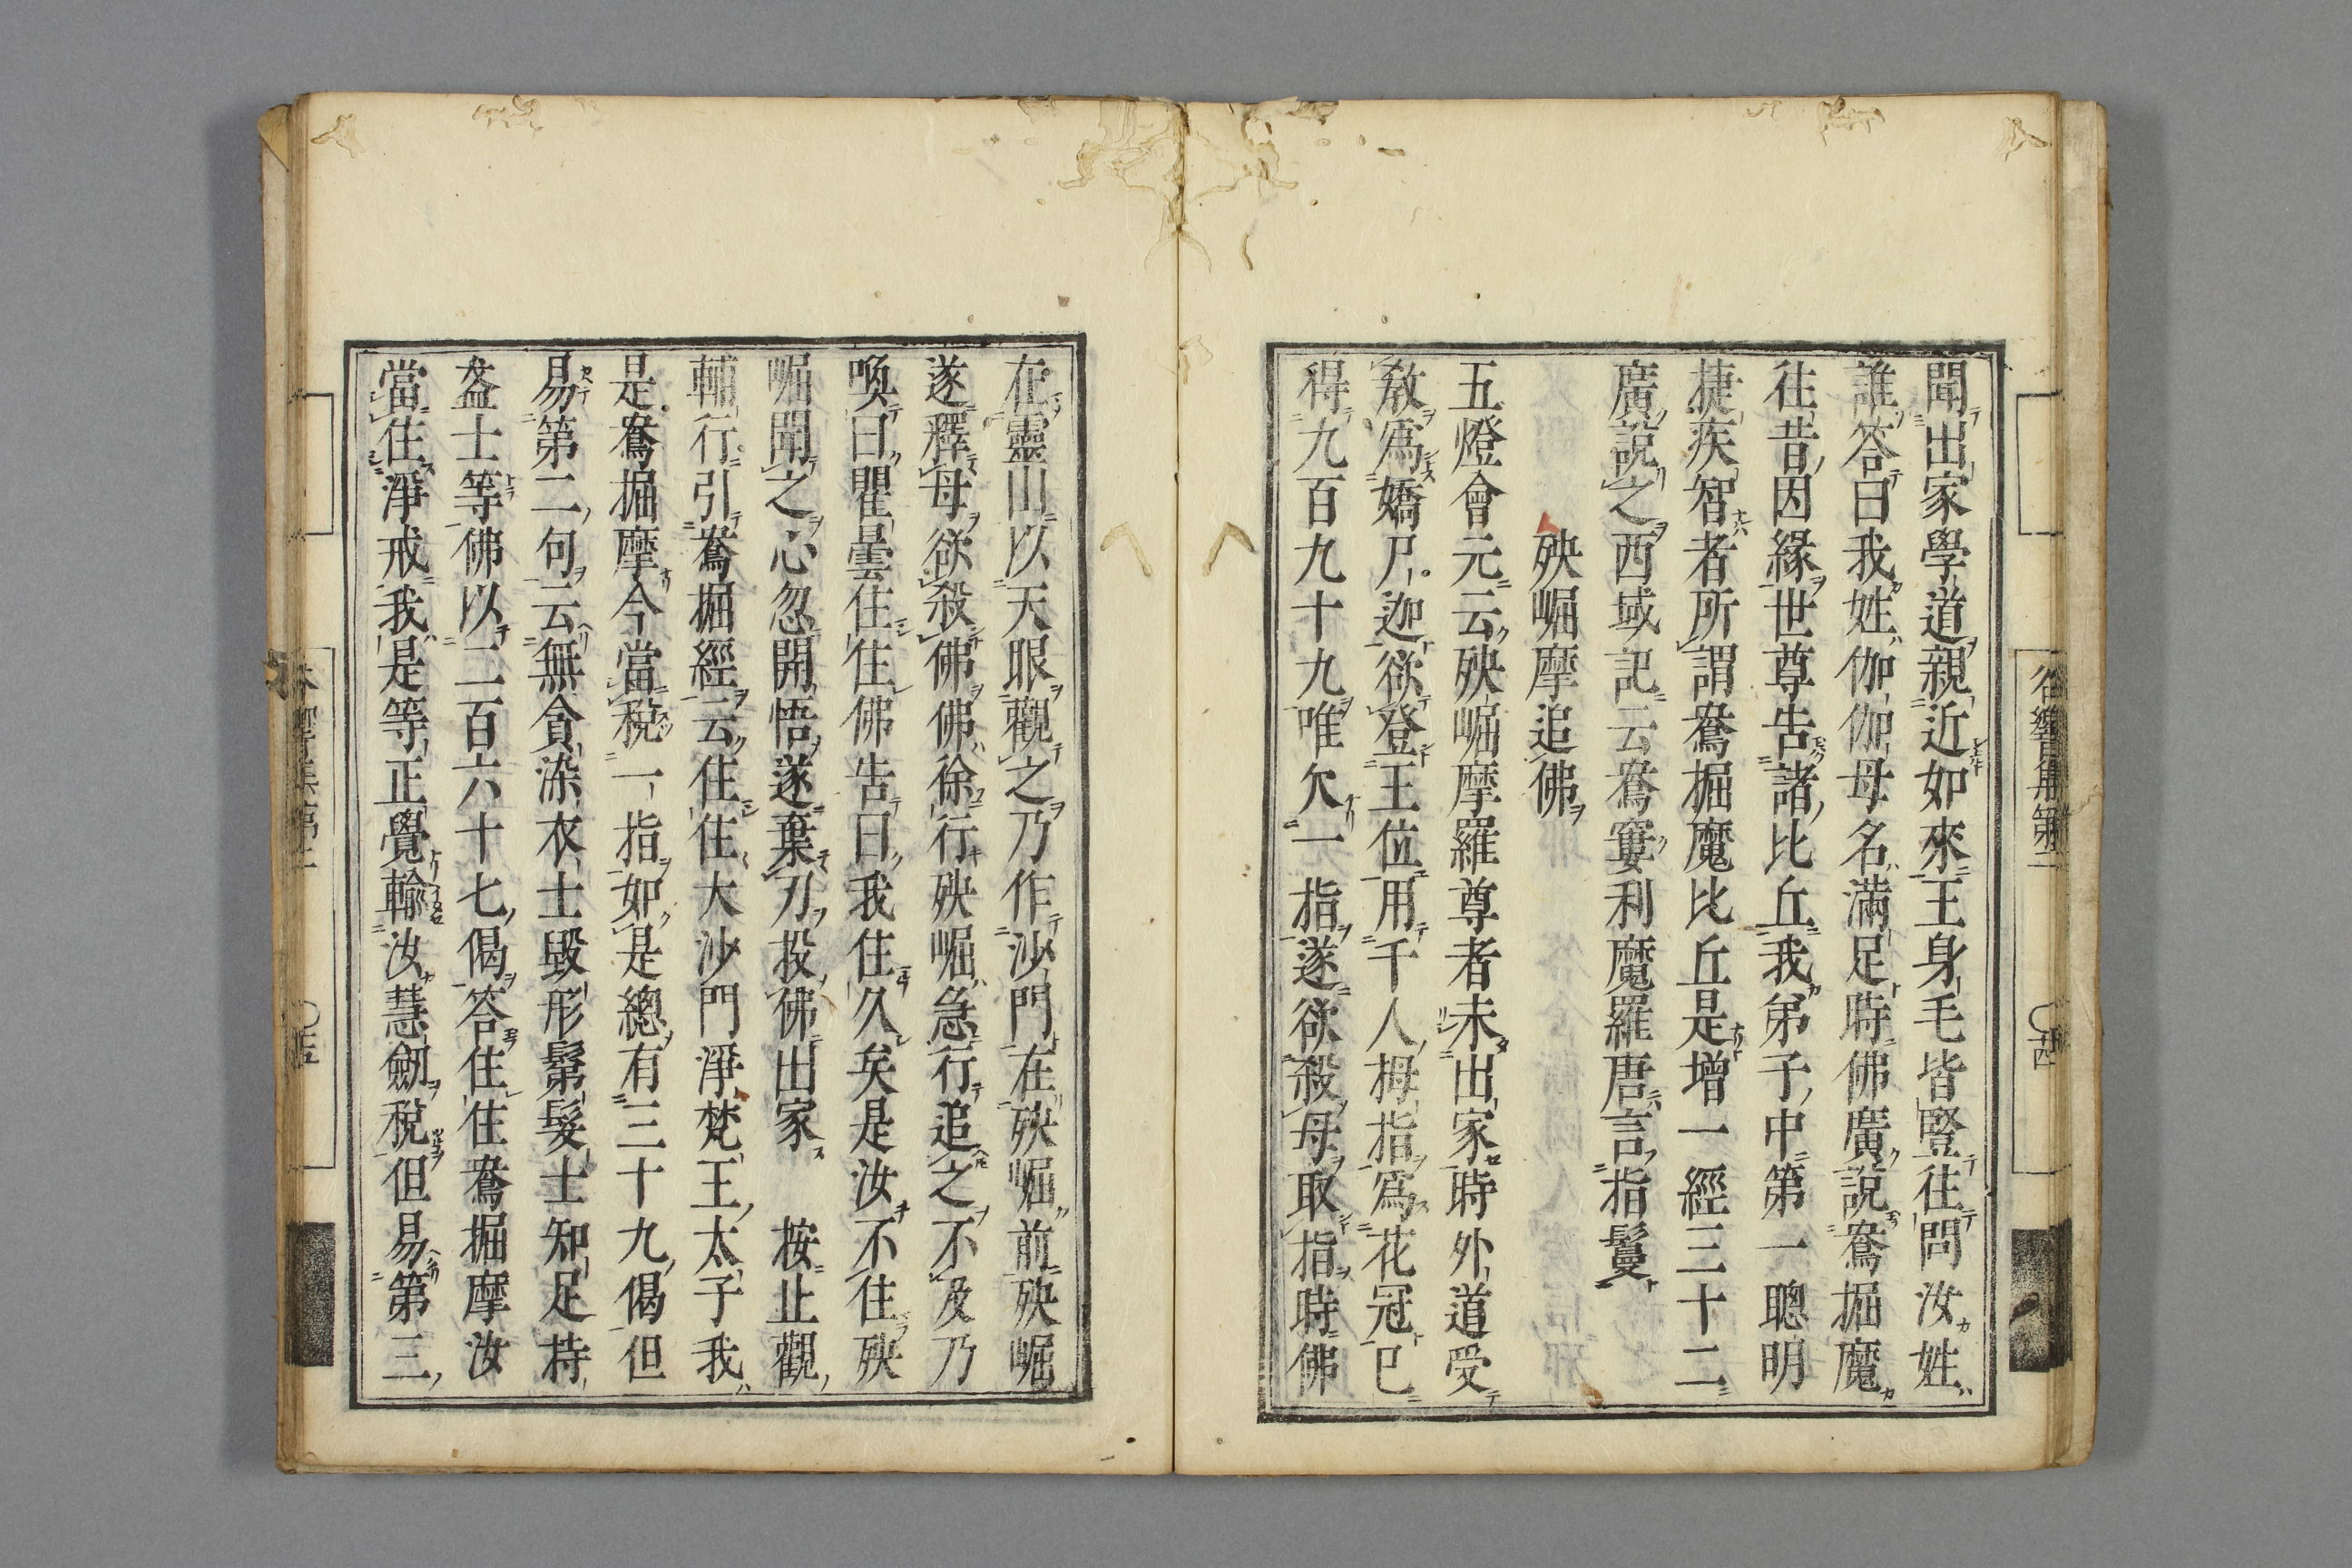 聞出家學道親近如來王身毛皆豎往問汝姓
誰答曰我姓伽伽母名滿足時佛廣說鴦掘魔
往昔因緣世尊告諸比丘我弟子中第一聰明
捷疾智者所謂鴦掘魔比丘是增一經三十二
廣說之西域記云鴦寠利魔羅唐言指鬘
殃崛摩追佛
五燈會元云殃崛摩羅尊者未出家時外道受
教為嬌尸迦欲登王位用千人拇指為花冠已
得九百九十九唯欠一指遂欲殺母取指時佛
在靈山以天眼觀之乃作沙門在殃崛前殃崛
遂釋母欲殺佛佛徐行殃崛急行追之不及乃
喚曰瞿曇住住佛告曰我住久矣是汝不住殃
崛聞之心忽開悟遂棄刀投佛出家 按止觀
輔行引鴦掘經云住住大沙門淨梵王太子我
是鴦掘摩今當稅一指如是總有三十九偈但
易第二句云無貪染衣士毀形鬀髮士知足持
盋士等佛以二百六十七偈答住住鴦掘摩汝
當住淨戒我是等正覺輸汝慧劒稅但易第三